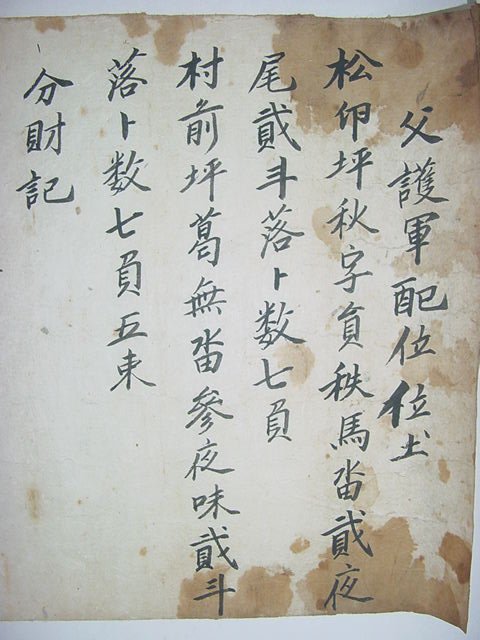 父護軍配位位土
松卵坪秋字負秩馬畓貳夜
尾貳斗落卜数七負
村前坪葛無畓參夜味貳斗
落卜数七負五束
分財記